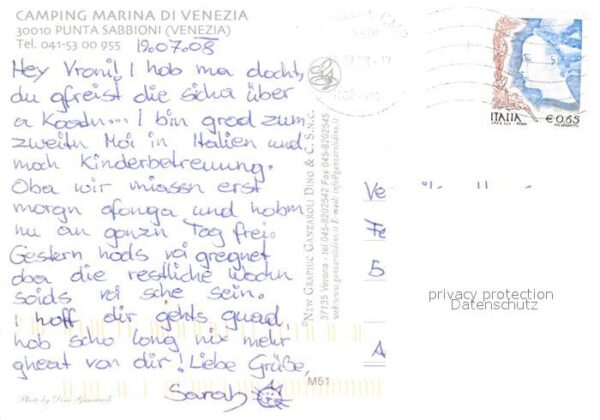 CAMPING MARINA DI VENEZIA
30010 PUNTA SABBIONI (VENEZIA)
Tel. 041-53 00 955
19.07.08
Hey Vroni! I hob ma docht,
du gfreist die sicha über
a Koatn... I bin grod zum
zweitn Moi in Italien und
moch Kinderbetreuung.
Oba wir miassn erst
morgn ofonga und hobm
nu an gonzn Tag frei.
Gestern hods voi gregnet
oba die restliche Wochn
soids voi sche sein.
i hoff dir gehts guad,
hob scho long nix mehr
gheat von dir! Liebe Grüße,
Sarah
Photo by Dino Ganzaroli
NEW GRAPHIC GANZAROLI DINO & C. S.N.C.
37135 Verona - tel.045-8202542 Fax 045-8202545
M51
ITALIA
€ 0,65
privacy protection
Datenschutz